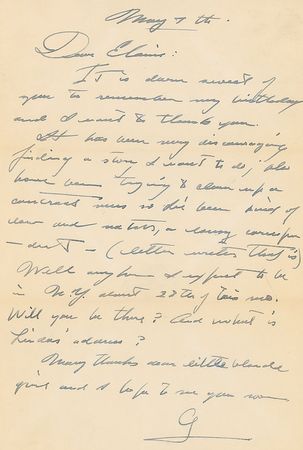 May 7th.
Dear Elaine:
It is darn sweet of
you to remember my birthday
and I want to thank you.
It has been very discouraging
finding a story I want to do; also
have been trying to clean up a
contract mess so I've been kind of
low and as a lousy correspon
-dent - (letter writer that is)
Well anyhow I expect to be
in N.Y. about 27th of this mo.
Will you be there? And what is
Lindas' address?
Many thanks dear little blonde
girl and I hope to see you soon
G